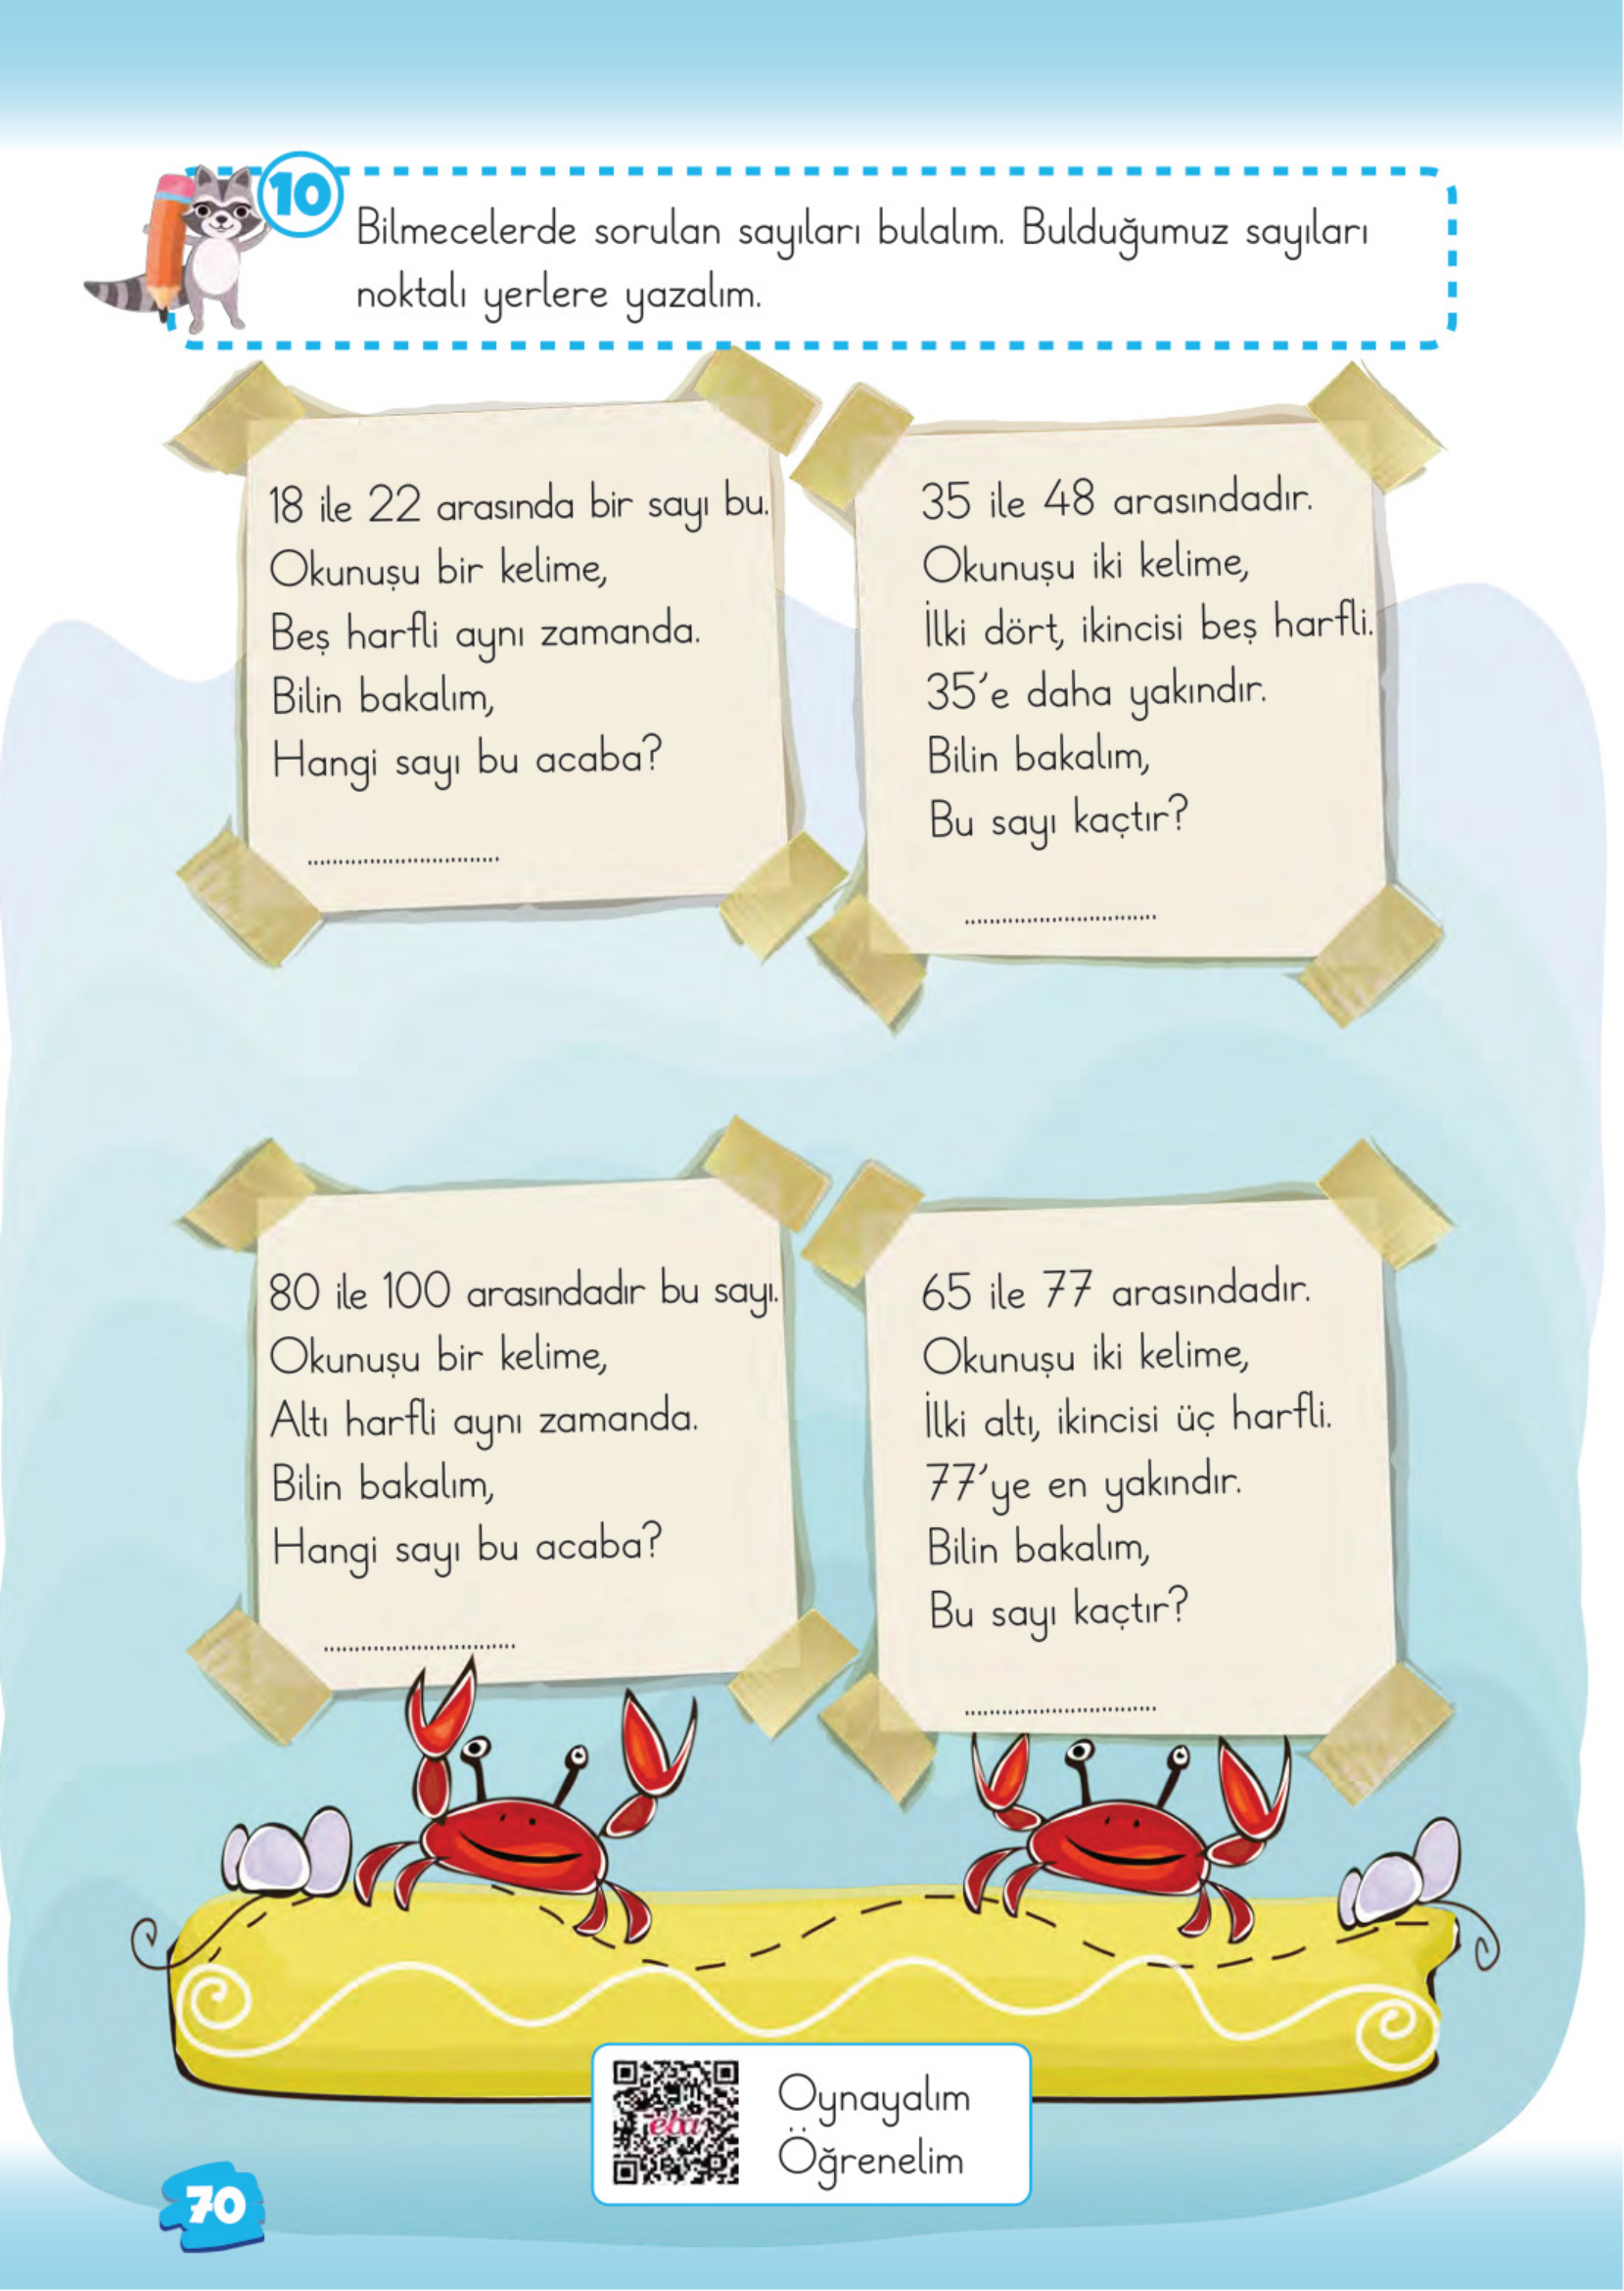 10
Bilmecelerde sorulan sayıları bulalım. Bulduğumuz sayıları
noktalı yerlere yazalım.
18 ile 22 arasında bir sayı bu.
Okunuşu bir kelime,
Beş harfli aynı zamanda.
Bilin bakalım,
Hangi sayı bu acaba?
...............................
35 ile 48 arasındadır.
Okunuşu iki kelime,
İlki dört, ikincisi beş harfli.
35'e daha yakındır.
Bilin bakalım,
Bu sayı kaçtır?
...............................
80 ile 100 arasındadır bu sayı.
Okunuşu bir kelime,
Altı harfli aynı zamanda.
Bilin bakalım,
Hangi sayı bu acaba?
...............................
65 ile 77 arasındadır.
Okunuşu iki kelime,
İlki altı, ikincisi üç harfli.
77'ye en yakındır.
Bilin bakalım,
Bu sayı kaçtır?
...............................
eba
Oynayalım
Öğrenelim
70